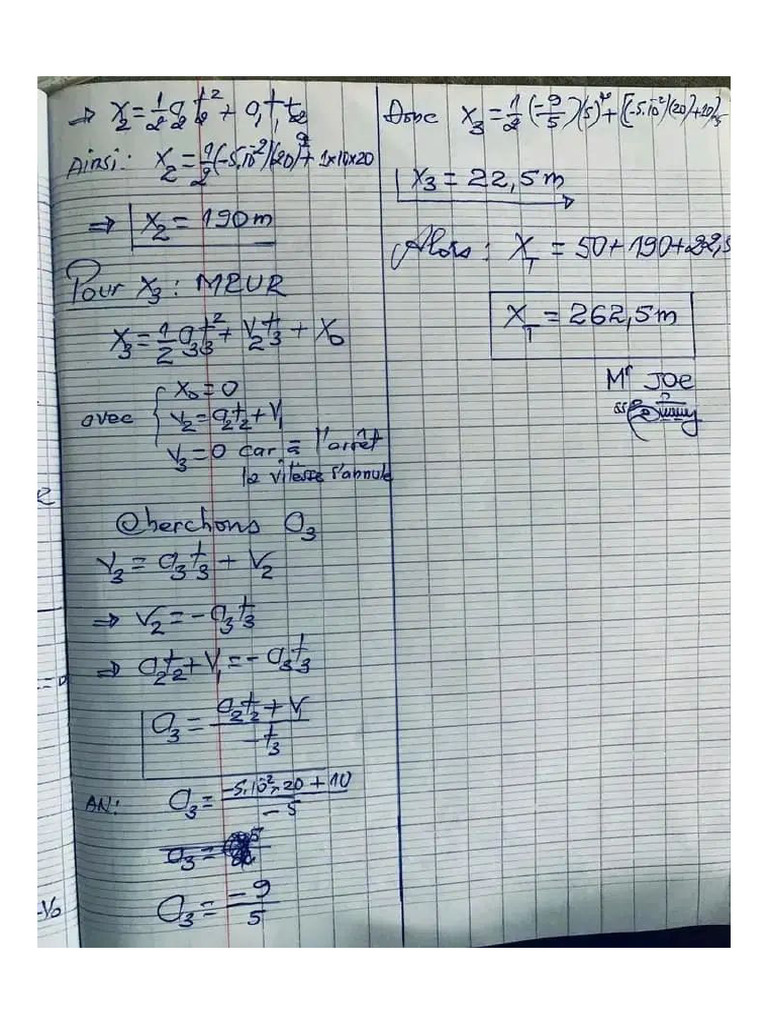 ⇒ x₂ = 1/2 a₂ t₂² + a₁ t₁ t₂
Ainsi: x₂ = 1/2 (-5.10⁻²)(20)² + 1x10x20
⇒ x₂ = 190m
Pour x₃: MRUR
x₃ = 1/2 a₃t₃² + v₂t₃ + x₀
avec { x₀ = 0
v₂ = a₂t₂ + v₁
v₃ = 0 car à l'arrêt
la vitesse s'annule
Cherchons a₃
v₃ = a₃t₃ + v₂
⇒ v₂ = -a₃t₃
⇒ a₂t₂ + v₁ = -a₃t₃
a₃ = (a₂t₂ + v₁)/(-t₃)
AN: a₃ = (-5.10⁻².20 + 10)/(-5)
a₃ =
a₃ = -9/5
Donc x₃ = 1/2 (-9/5)(5)² + [(-5.10⁻²)(20)+10]5
x₃ = 22,5m
Alors: x_T = 50+190+22,5
x_T = 262,5m
Mr JOE
-V₀